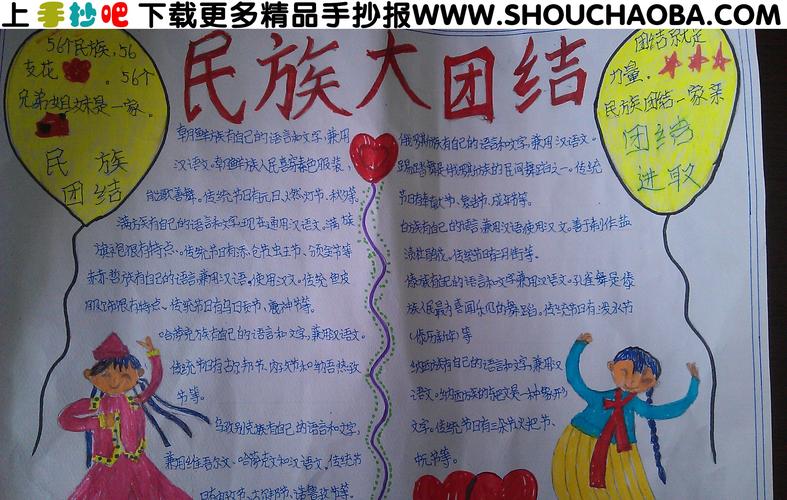 上手抄吧下载更多精品手抄报WWW.SHOUCHAOBA.COM
民族大团结
56个民族,56
支花。56个
兄弟姐妹是一家。
民族
团结
团结就是
力量。
民族团结一家亲
团结
进取
朝鲜族有自己的语言和文字,兼用
汉语文。朝鲜族人民喜穿素色服装,
能歌善舞。传统节日有元日、燃灯节、秋夕等
满族有自己的语言和文字,现在通用汉语文。满族
旗袍很有特点。传统节日有添仓节虫王节、颁金节等
赫哲族有自己的语言兼用汉语。使用汉文。传统鱼皮
服饰很有特点。传统节日有乌日贡节、鹿神节等。
哈萨克族有自己的语言和文字,兼用汉语文。
传统节日有古尔邦节、肉孜节和纳吾热孜
节等。
乌孜别克族有自己的语言和文字,
兼用维吾尔文、哈萨克文和汉语文,传统节
日有肉孜节、古尔邦节、诺鲁孜节等。
俄罗斯族有自己的语言和文字,兼用汉语文。
踢踏舞是俄罗斯族的民间舞蹈之一。传统
节日有、复活节、成年节等。
白族有自己的语言兼用汉语使用汉文。善于制作
。传统节日有三月街等。
傣族有自己的语言和文字兼用汉语文。孔雀舞是傣
族人民最喜闻乐见的舞蹈。传统节日有泼水节
(傣历新年)等
纳西族有自己的语言和文字,兼用汉
语文。纳西族的东巴文是一种象形
文字。传统节日有三朵节火把节、
中元节等。